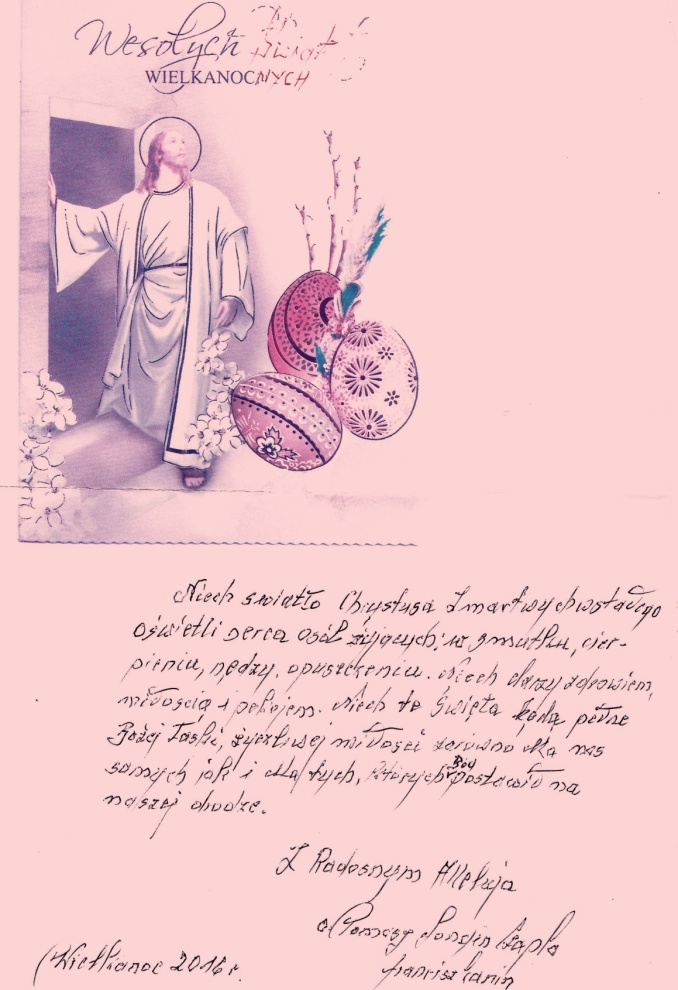 Wesołych Świąt
WIELKANOCNYCH
Niech światło Chrystusa Zmartwychwstałego
oświetli serca osób żyjących w smutku, cier-
pieniu, nędzy, opuszczeniu. Niech darzy zdrowiem,
miłością i pokojem. Niech te Święta będą pełne
Bożej łaski, życzliwej miłości zarówno dla nas
samych jak i dla tych, których Bóg postawił na
naszej drodze.
Z Radosnym Alleluja
o. Tomasz
franciszkanin
Wielkanoc 2016 r.